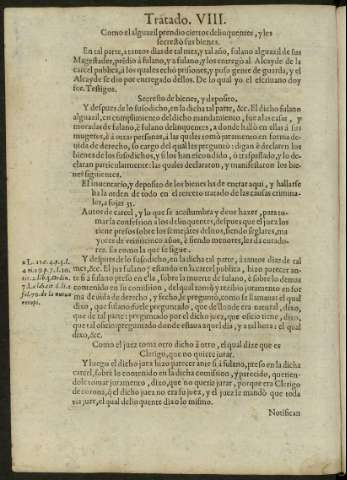 Tratado. VIII.
Como el alguazil prendio ciertos delinquentes, y les
secrestò sus bienes.
En tal parte, a tantos dias de tal mes, y tal año, fulano alguazil de sus
Magestades, prẽdio à fulano, y a fulano, y los entregò al Alcayde de la
carcel publica, à los quales echò prisiones, y puso gente de guarda, y el
Alcayde se dio por entregado dellos. De lo qual yo el escriuano doy
fee. Testigos.
Secresto de bienes, y deposito.
Y despues de lo susodicho, en la dicha tal parte, &c. El dicho fulano
alguazil, en cumplimiento del dicho mandamiento, fue a las casas, y
moradas de fulano, è fulano delinquentes, adonde hallò en ellas à sus
mugeres, è à otras personas, à las quales tomò juramento en forma de-
uida de derecho, so cargo del qual les preguntò: digan è declaren los
bienes de los susodichos, y si los han escondido, ò traspassado, y lo de-
claran particularmente: las quales declararon, y manifestaron los bie-
nes siguientes.
El inuentario, y deposito de los bienes ha de entrar aqui, y hallarse
ha la orden de todo en el tercero tratado de las causas crimina-
les, a fojas 33.
Autos de carcel, y lo que se acostumbra y deue hazer, para to-
mar la confession a los delinquentes, despues que el juez los
tiene presos sobre los semejātes delitos, siendo seglares, ma
yores de veinticinco años, è siendo menores, les dā curado-
res. Es como la que se sigue.
Y despues de lo susodicho, en la dicha tal parte, à tantos dias de tal
mes, &c. El juez fulano estando en la carcel publica, hizo parecer an-
te si à fulano preso en ella, sobre la muerte de fulano, è sobre lo demas
contenido en su comission, del qual tomò y recibio juramento en for
ma deuida de derecho, y fecho, le preguntò, como se llama: el qual
dixo, que fulano: fuele preguntado, que de donde era natural, dixo,
que de tal parte: preguntado por el dicho juez, que oficio tiene, dixo,
que tal oficio: preguntado donde estaua aquel dia, y a tal hora: el qual
dixo, &c.
Como el juez toma otro dicho à otro, el qual dize que es
Clerigo, que no quiere jurar.
Y luego el dicho juez hizo parecer ante si, à fulano, preso en la dicha
carcel, sobre lo contenido en la dicha comission, y parecido, querien-
dole tomar juramento, dixo, que no queria jurar, porque era Clerigo
de corona, q̃ el dicho juez no era su juez, y el juez le mandò que toda
via jure, el qual delinquente dixo lo mismo.
Notifican